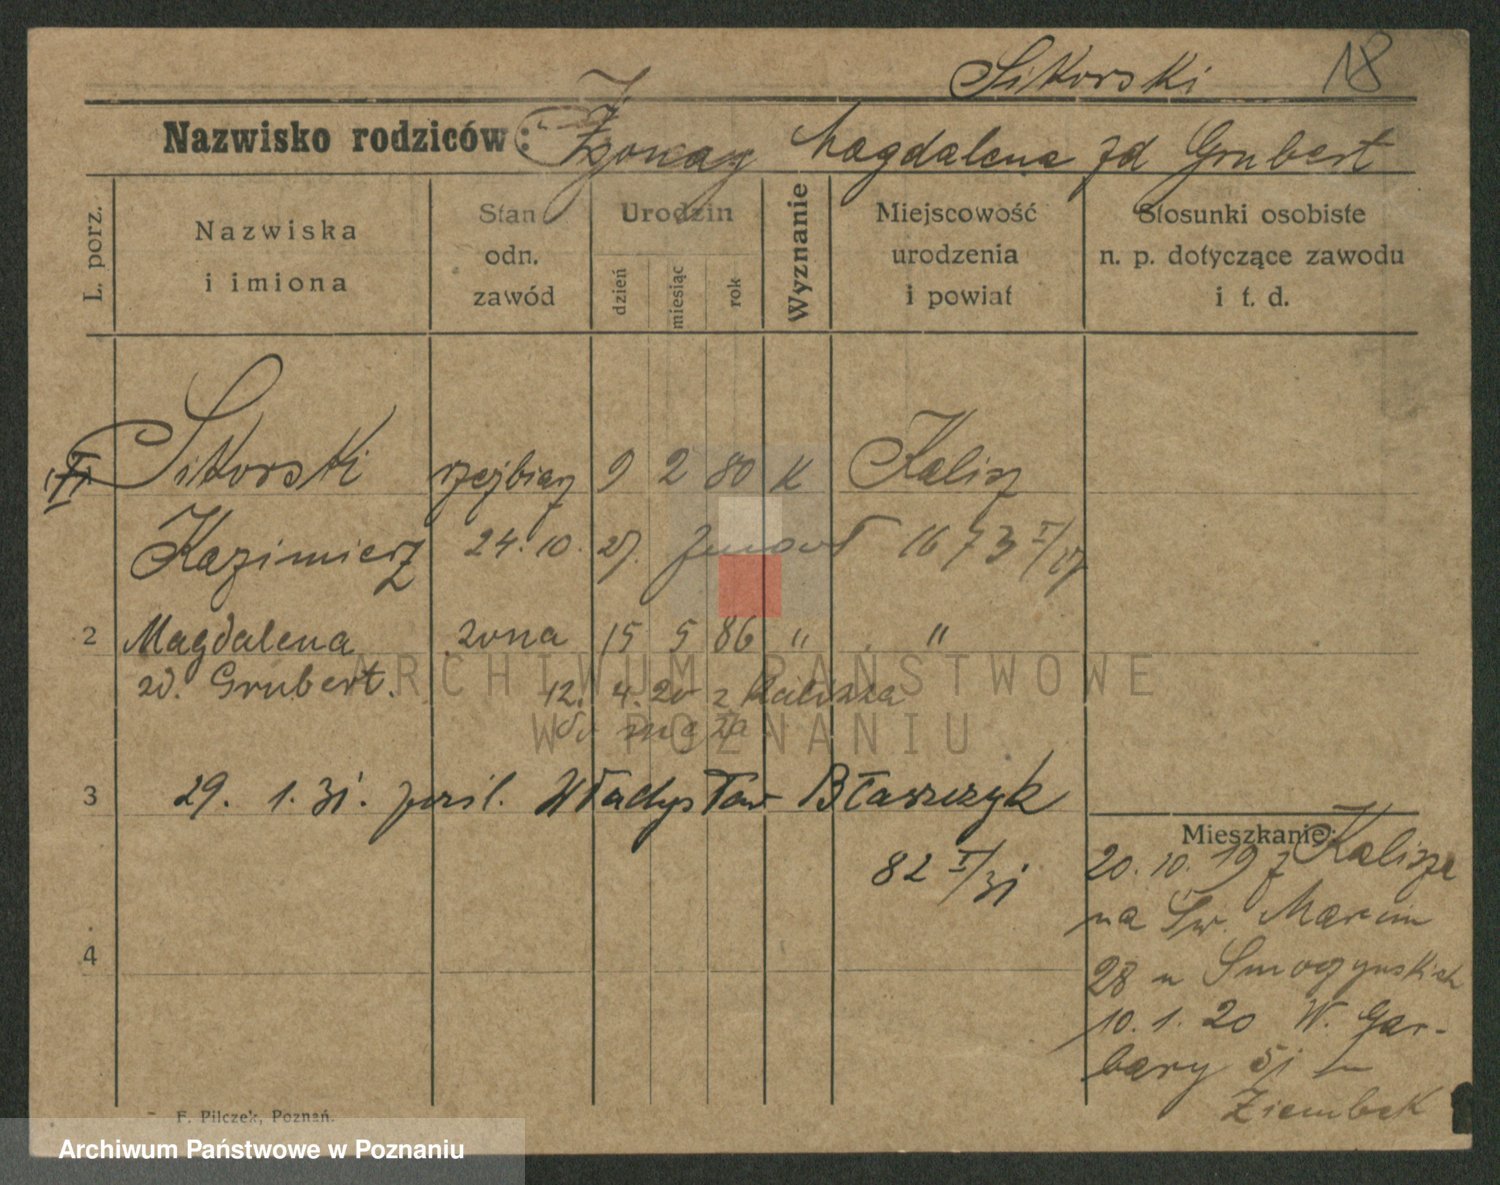 Sikorski 18
Nazwisko rodziców: Magdalena zd Grubert
L. porz.
Nazwiska i imiona
Stan odn. zawód
Urodzin
dzień
miesiąc
rok
Wyznanie
Miejscowość urodzenia i powiat
Stosunki osobiste n. p. dotyczące zawodu i t. d.
Sikorski rzezbiarz 9 2 80 K Kalisz
Kazimierz 24. 10. 27. 1673 I/27
2 Magdalena zona 15 5 86 " "
zd. Grubert. 12. 4. 20 z Kalisza
do męża
3 29. 1. 31. Władysław Błaszczyk
82 I/31
4
Mieszkanie:
20. 10. 19 z Kalisza
na Św. Marcin
28 u Smoczynskich
10. 1. 20 W. Gar-
bary 51 u
Ziembek
F. Pilczek, Poznań.
ARCHIWUM PAŃSTWOWE
W POZNANIU
Archiwum Państwowe w Poznaniu